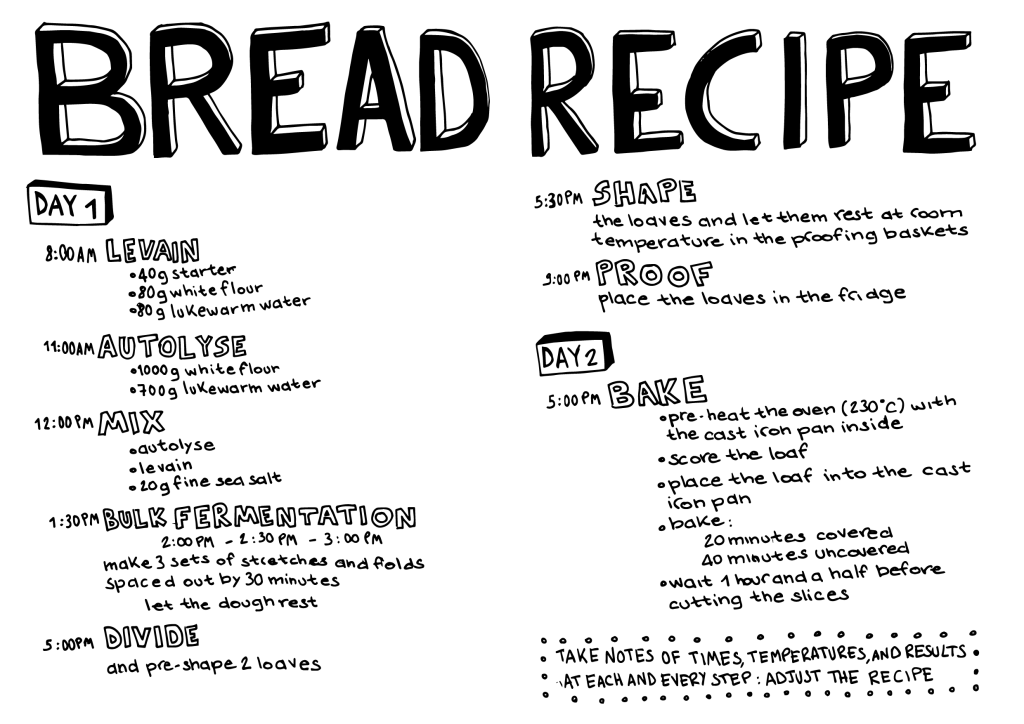 BREAD RECIPE
DAY 1
8:00AM LEVAIN
•40g starter
•80g white flour
•80g lukewarm water
11:00AM AUTOLYSE
•1000g white flour
•700g lukewarm water
12:00PM MIX
•autolyse
•levain
•20g fine sea salt
1:30PM BULK FERMENTATION
2:00PM - 2:30PM - 3:00PM
make 3 sets of stretches and folds
spaced out by 30 minutes
let the dough rest
5:00PM DIVIDE
and pre-shape 2 loaves
5:30PM SHAPE
the loaves and let them rest at room
temperature in the proofing baskets
9:00PM PROOF
place the loaves in the fridge
DAY 2
5:00PM BAKE
•pre-heat the oven (230°C) with
the cast iron pan inside
•score the loaf
•place the loaf into the cast
iron pan
•bake:
20 minutes covered
40 minutes uncovered
•wait 1 hour and a half before
cutting the slices
TAKE NOTES OF TIMES, TEMPERATURES, AND RESULTS
AT EACH AND EVERY STEP: ADJUST THE RECIPE